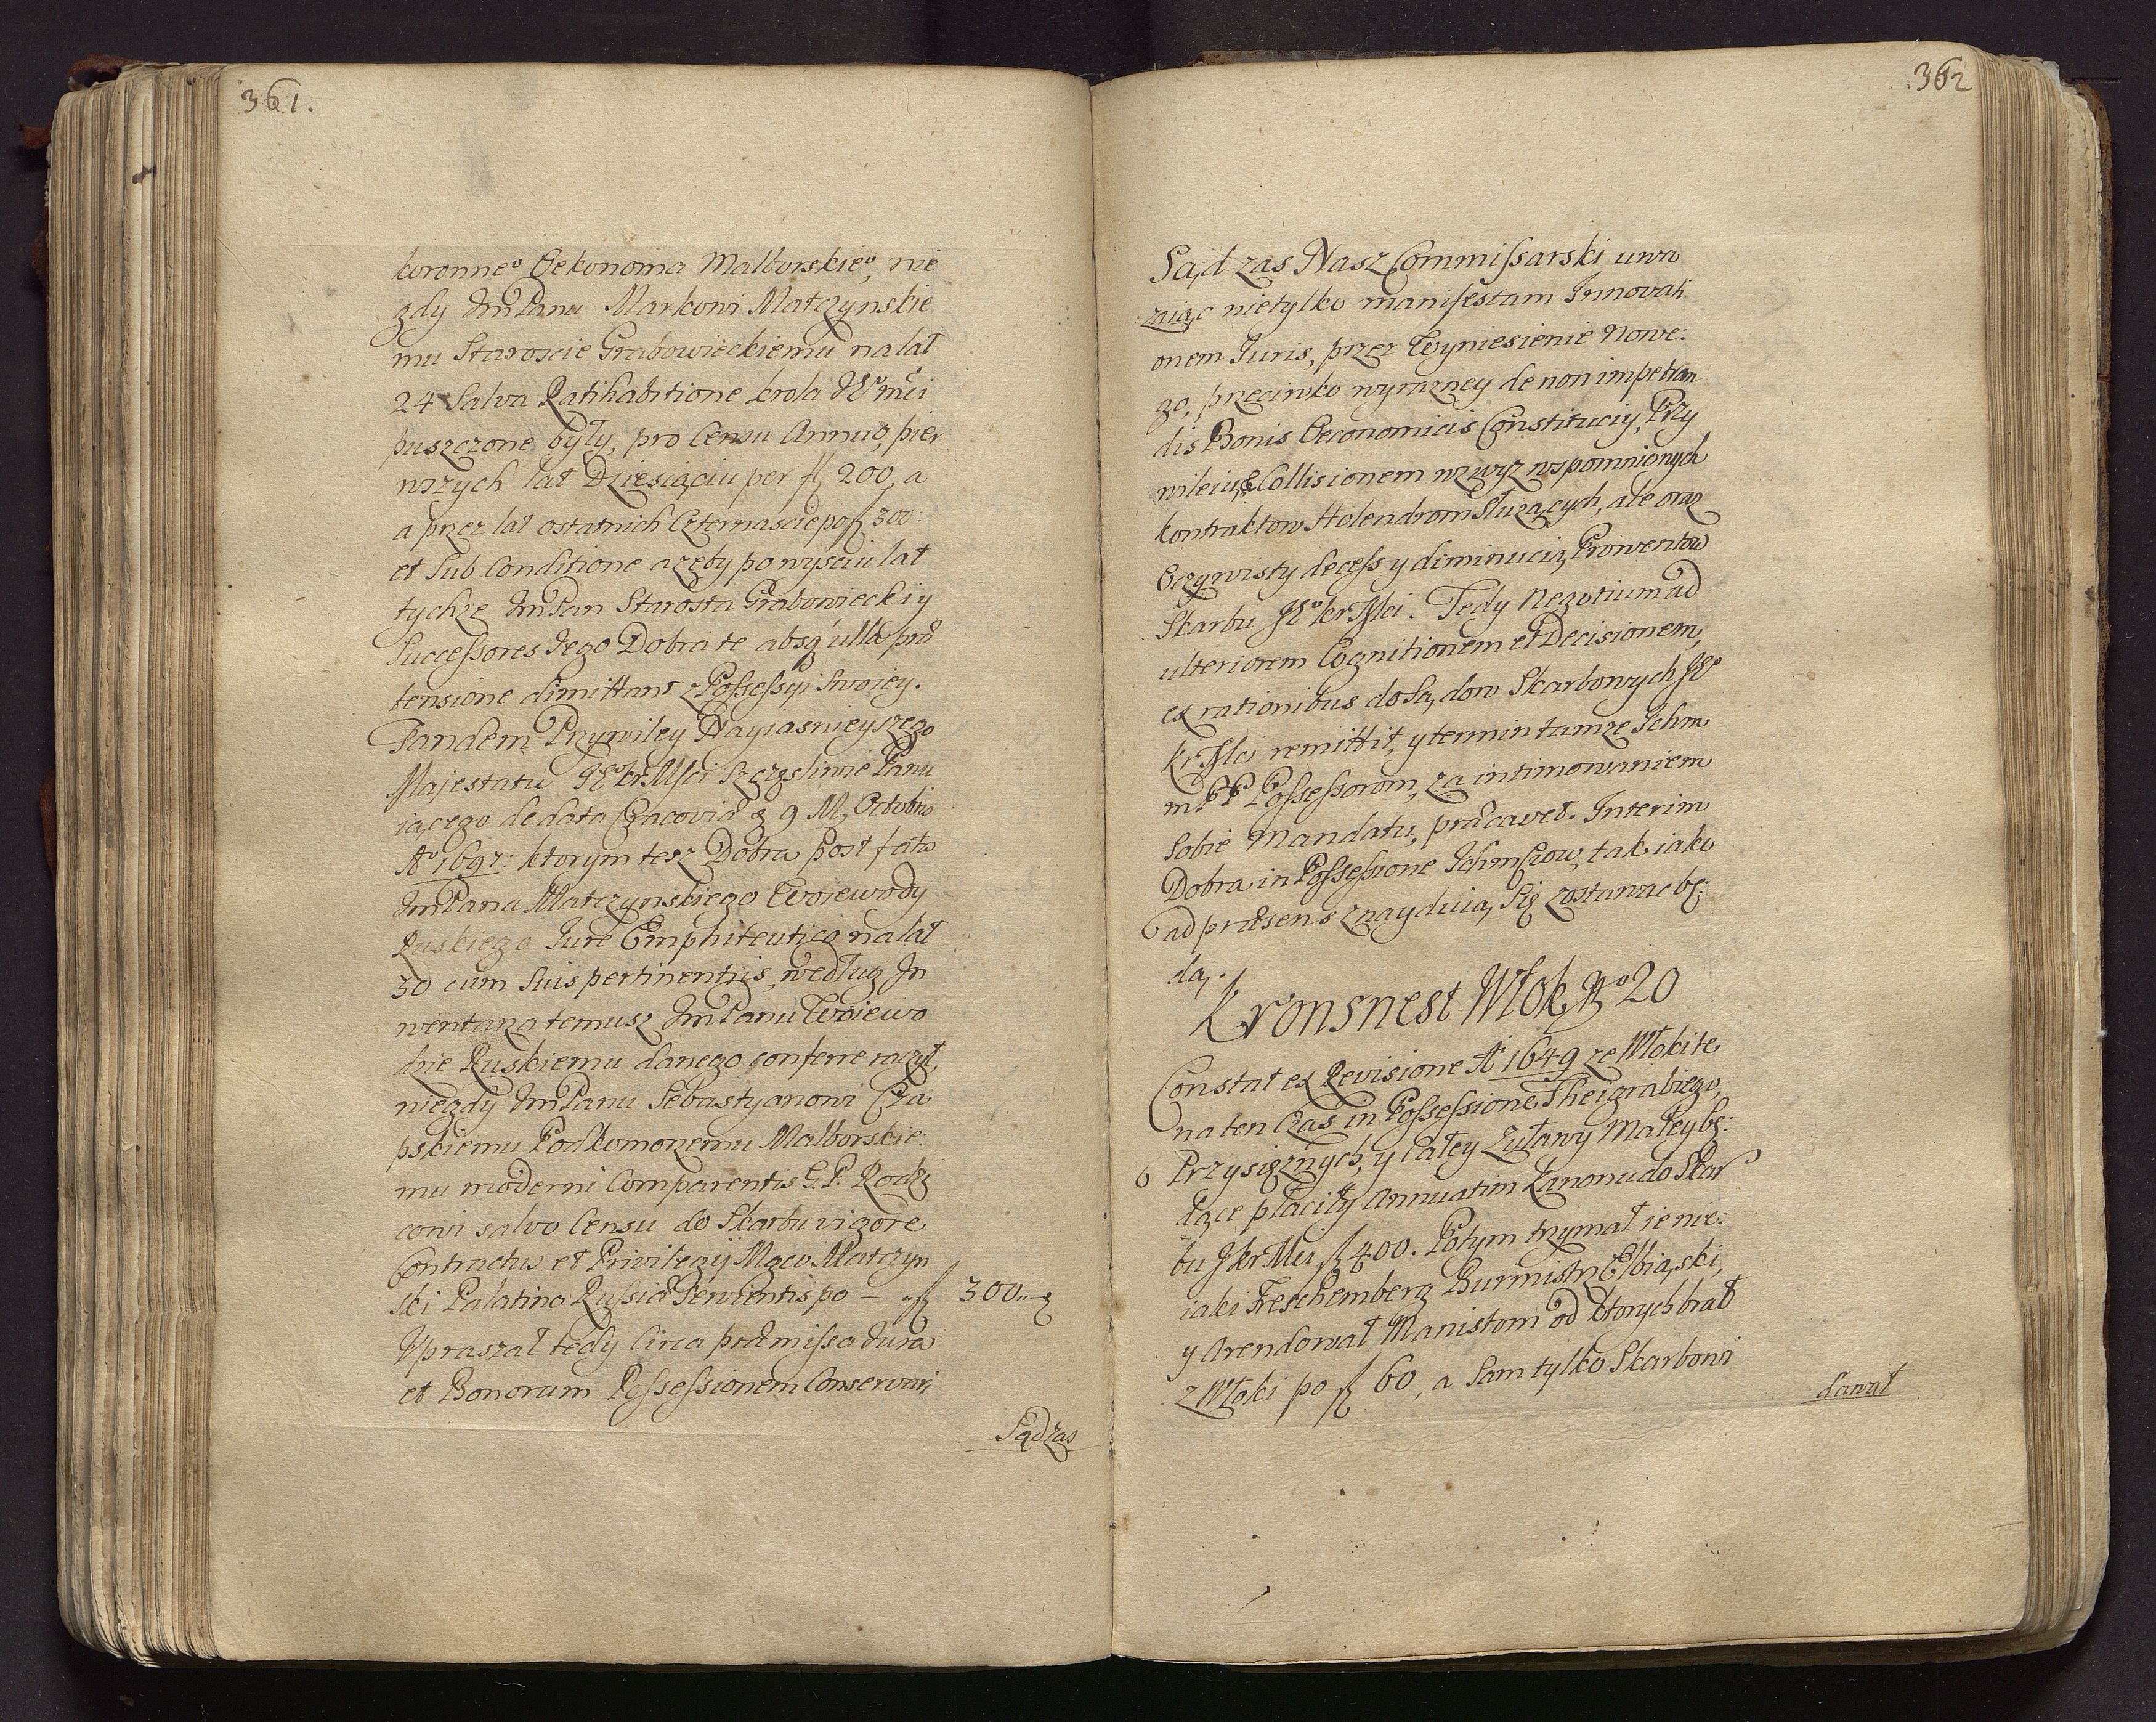 361.
koronne° Oekonoma Malborskie°, nie
gdy ImPanu Markowi Matczynskie
mu Staroscie Grabowieckiemu na lat
24 Salva Ratihabitione krola
puszczone były, pro Censu Annuo, pier
wszych lat Dziesiąciu per fl 200, a
a przez lat ostatnich Czternascie po fl 300:
et Sub Conditione azeby po wysciu lat
tychze ImPan Starosta Grabowiecki y
Successores Jego Dobra te absq ulla præ
tensione dimittant z Possessyi Swoiey.
Tandem Przywiley Nayiasnieyszego
Majestatu JE°krMsci Szczęsliwie Panu
iącego de data Cracoviæ 9 M, Octobris
A° 1697: ktorym tesz Dobra post fata
ImPana Matczynskiego Woiewody
Ruskiego Jure Emphiteutico na lat
30 cum Suis pertinentijs według In
wentarza temusz ImPanu Woiewo
dzie Ruskiemu danego conferre raczył,
niegdy ImPanu Sebastyanowi Cza
pskiemu Podkomorzemu Malborskie:
mu moderni Comparentis G.P. Rodzi
cowi salvo Censu do Skarbu vigore
Contractus et Privilegij Mgco Matczyn
ski Palatino Russiæ Servientis po — fl 300
Upraszał tedy Circa præmissa Jura
et Bonorum Possessionem Conservari,
Sąd zas
362
Sąd zas Nasz Commissarski uwa
zaiąc nietylko manifestam Innovati
onem Juris, przez Wyniesienie Nowe:
go, przeciwko wyrazney de non impetran
dis Bonis Oeconomicis Constituciy, Przy
wileiu, & Collisionem wzwyz wspomnionych
kontraktow Holendrom Słuzących, ale oraz
Oczywisty decess y diminucią Prowentow
Skarbu JE°krMsci. Tedy Negotium ad
ulteriorem Cognitionem et Decisionem,
ex rationibus do Sądow Skarbowych JE°
KrMsci remittit, y termin tamze Ichm
m PP Possessorom, za intimowaniem
Sobie Mandatu, præcavet. Interim
Dobra in Possessione IchmCiow, tak iako
ad præsens znayduią Się zostawac bę:
dą.
Kronsnest Włok N° 20
Constat ex Revisione A° 1649 ze Włoki te
na ten Czas in Possessione Theigrabiego,
Przysięznych, y Całey Zuławy Małey bę:
dące płaciły Annuatim Kanonu do Skar
bu JkrMci fl 400. Potym trzymał ie nie:
iaki Freschemberg Burmistrz Elbiąski,
y Arendował Manistom od ktorych brał
z Włoki po fl 60, a Sam tylko Skarbowi
dawał